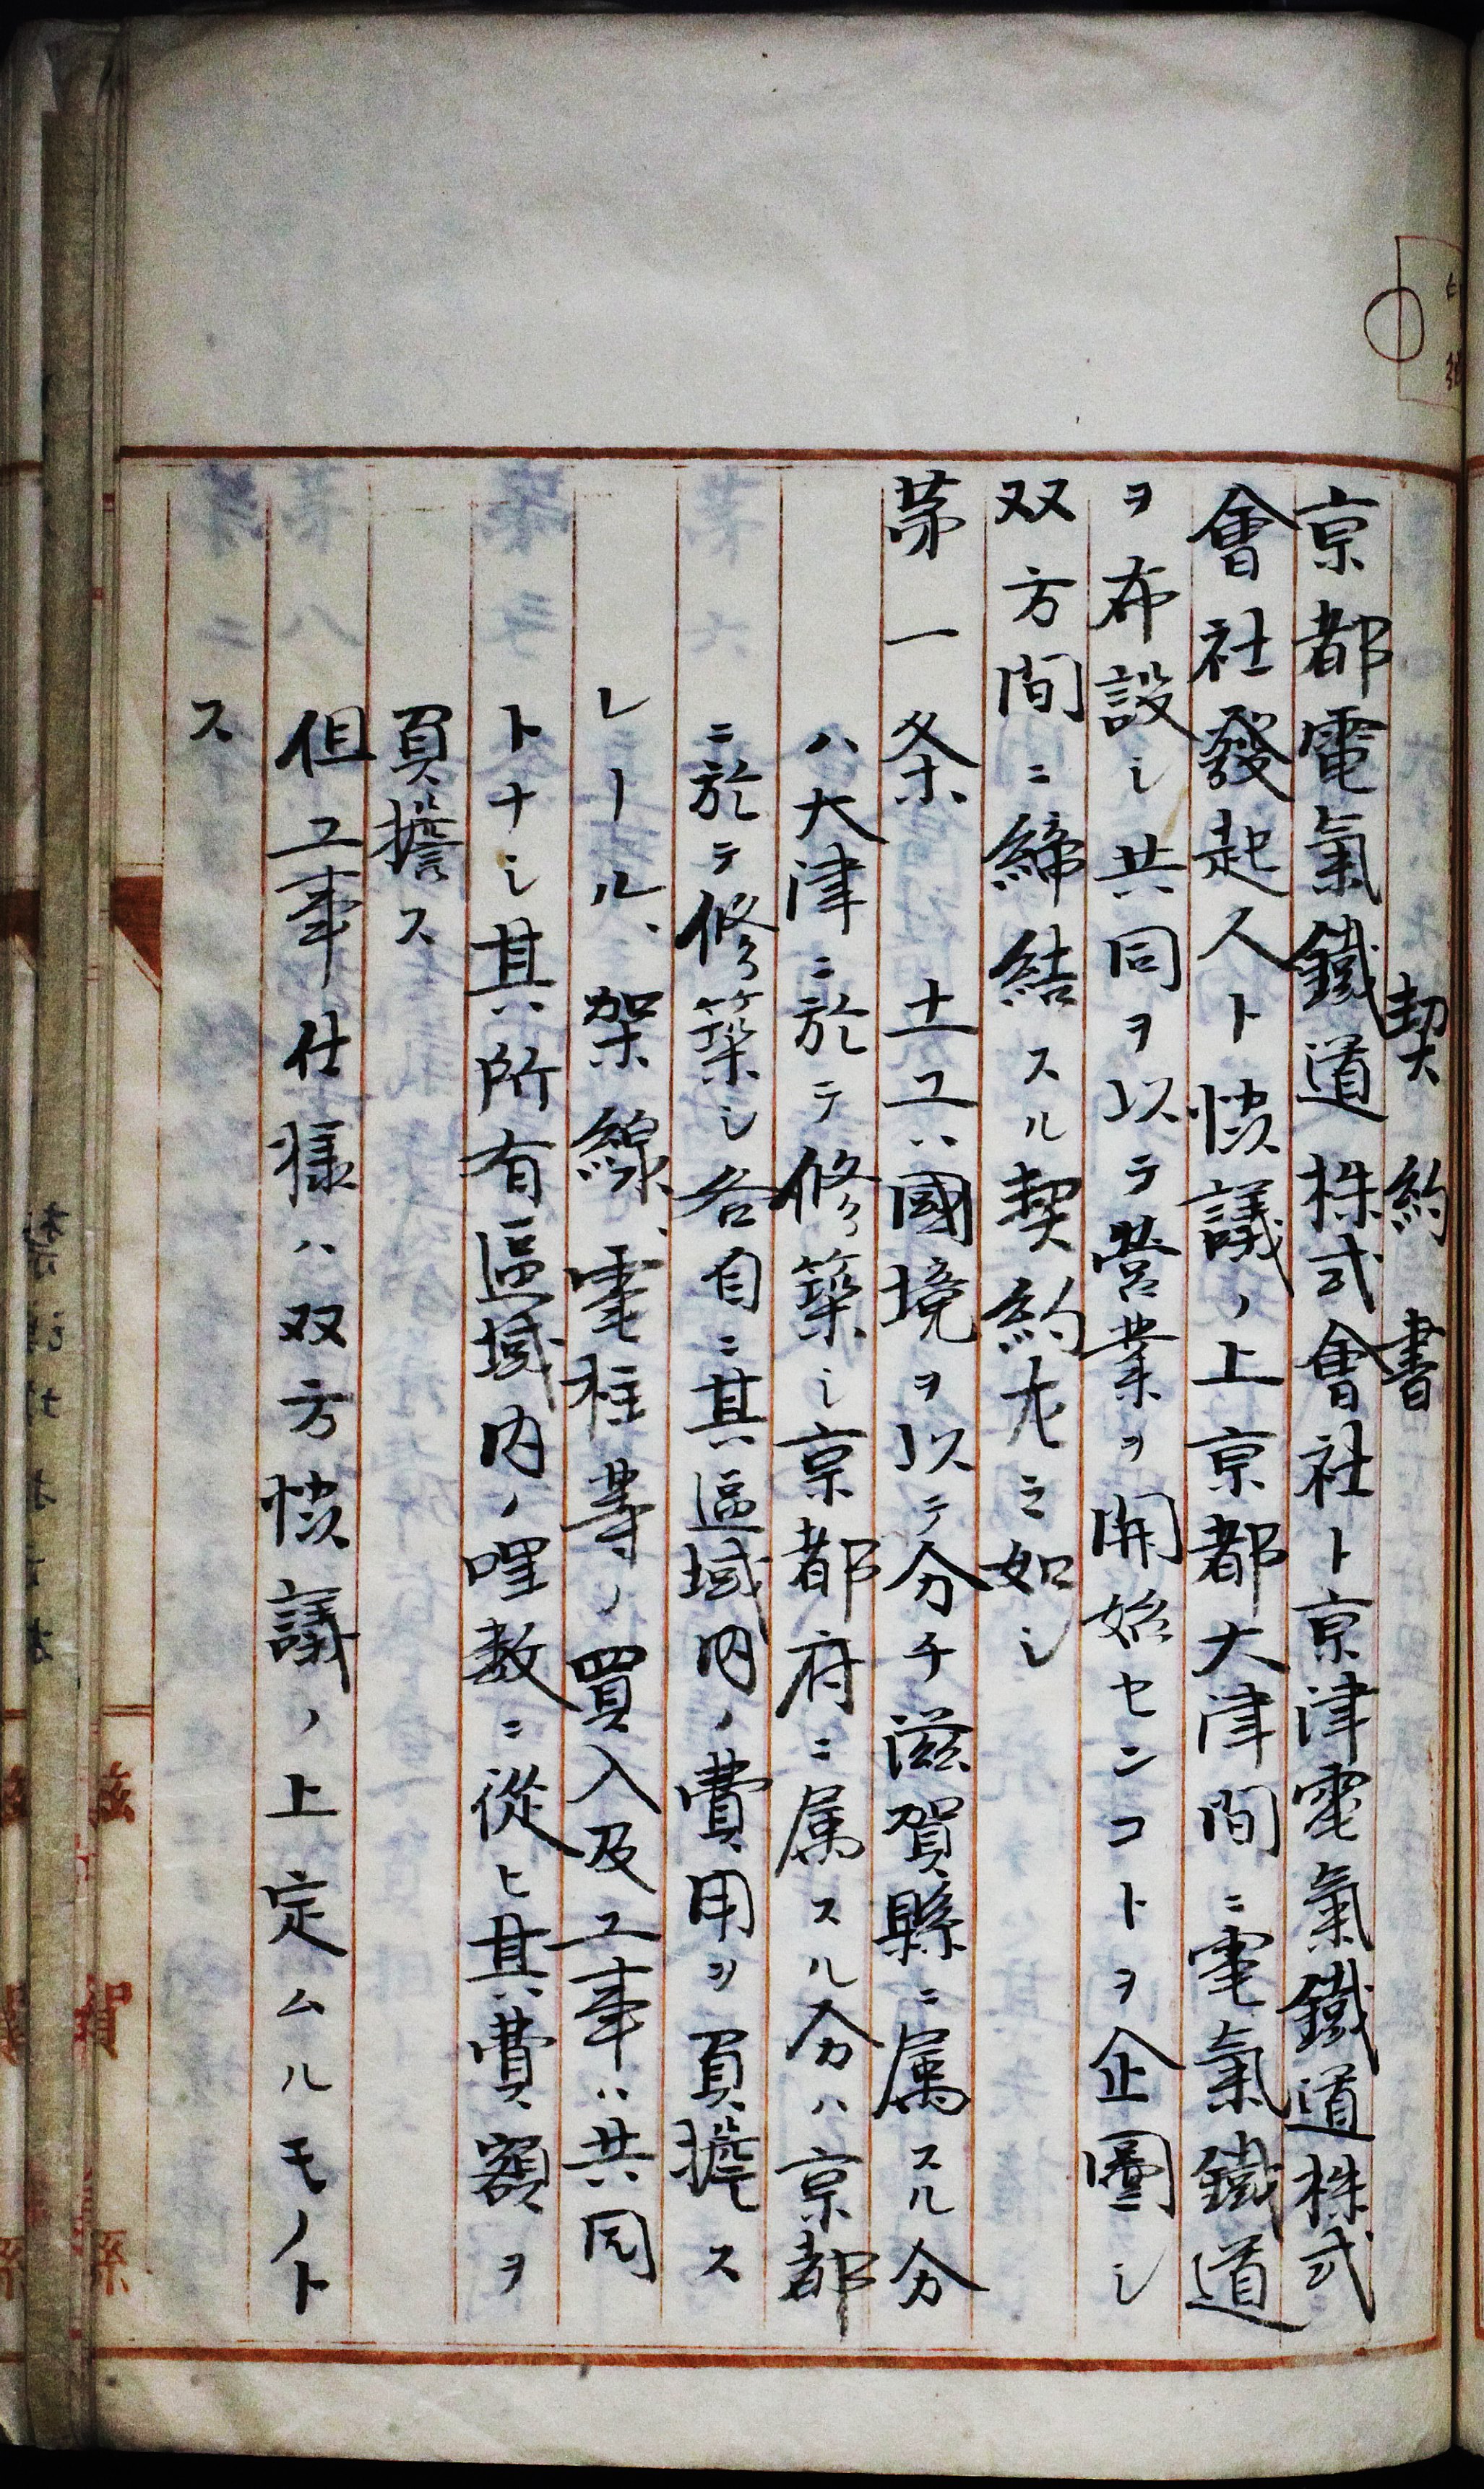 契約書
京都電氣鐵道株式會社ト京津電氣鐵道株式
會社發起人ト恊議ノ上京都大津間ニ電氣鐵道
ヲ布設シ共同ヲ以テ営業ヲ開始センコトヲ企圖シ
双方間ニ締結スル契約左ニ如シ
第一条 土工ハ國境ヲ以テ分チ滋賀縣ニ属スル分
ハ大津ニ於テ修築シ京都府ニ属スル分ハ京都
ニ於テ修築シ各自ニ其區域内ノ費用ヲ負擔ス
レール、架線、電柱等ノ買入及工事ハ共同
トナシ其所有區域内ノ哩数ニ從ヒ其費額ヲ
負擔ス
但工事仕様ハ双方恊議ノ上定ムルモノト
ス